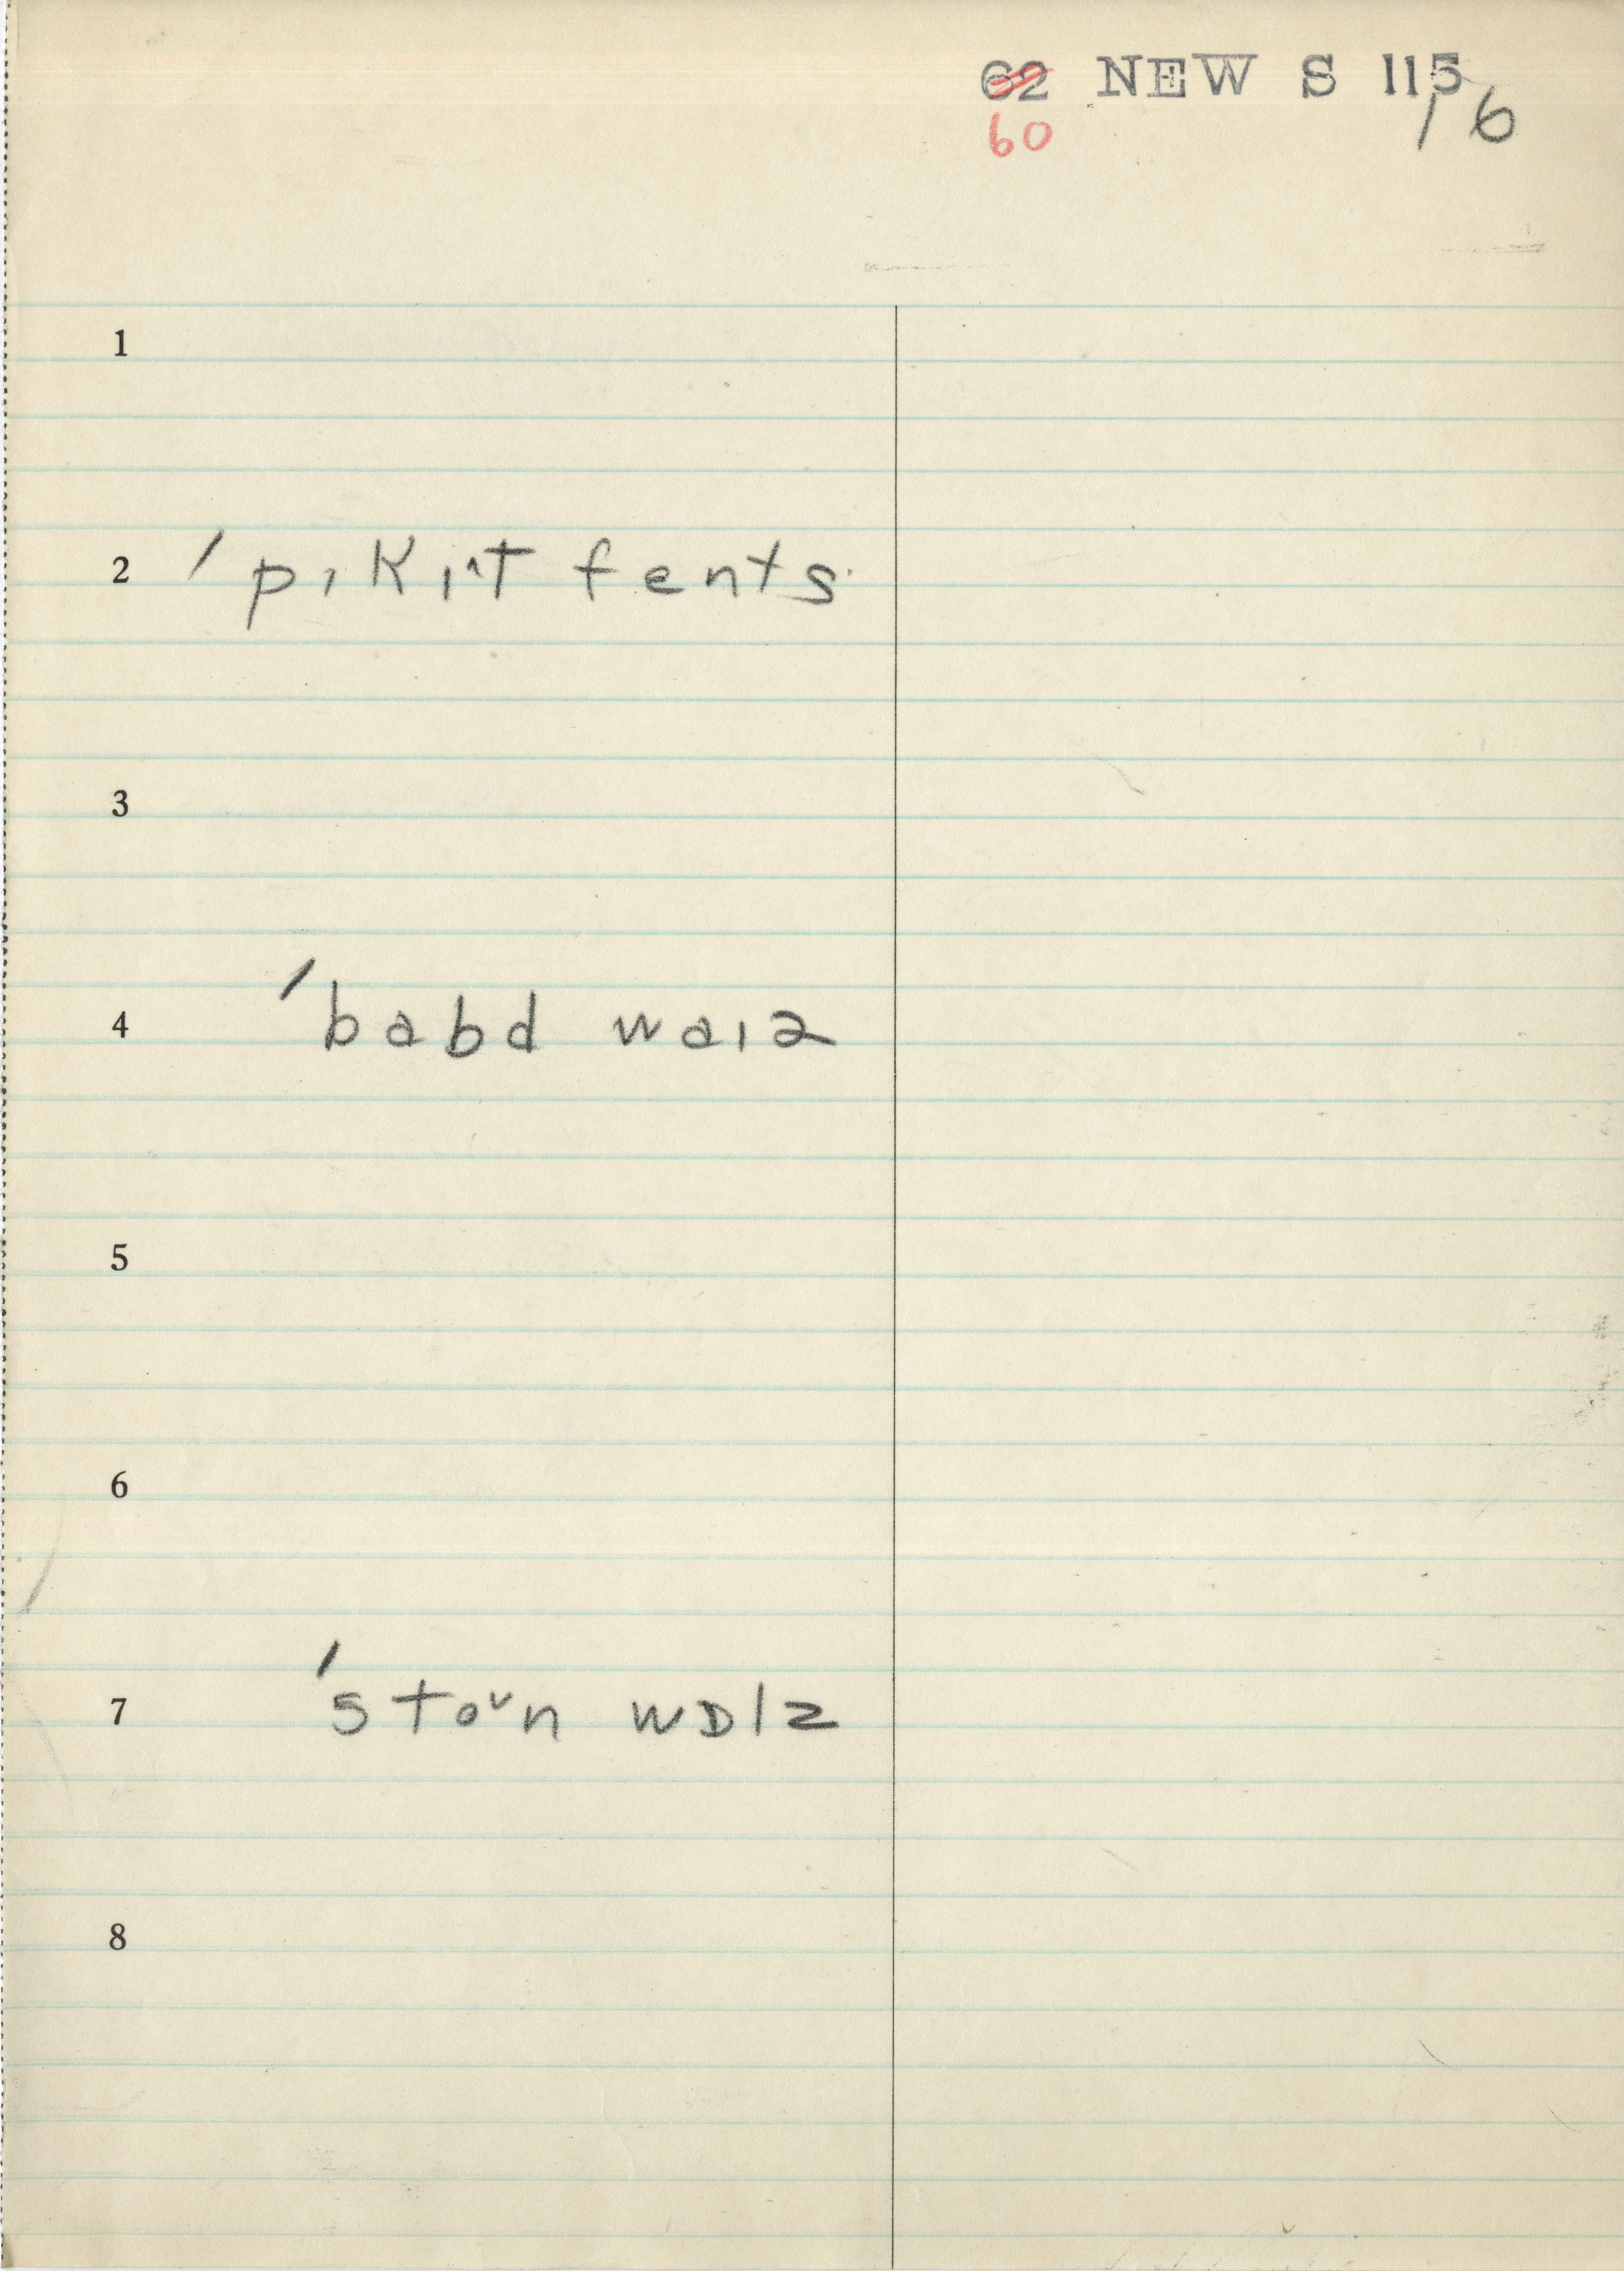 62 NEW S 115
60 16
1
2 ˈpɪkɪˆt fents
3
4 ˈbabd waɪə
5
6
7 ˈstoᵛn wɒlz
8